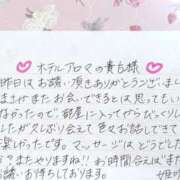 ホテルアロマの貴方様
昨日はお誘い頂きありがとうございまし
まさかまたお会いできるとは思ってもい
なかったので、部屋に入ってびっくりし
したが久しぶり会えて色々お話しできて
楽しかったです。マッサージはどうでした
？またやりますね!!お時間合えばお
誘いお待ちしております。